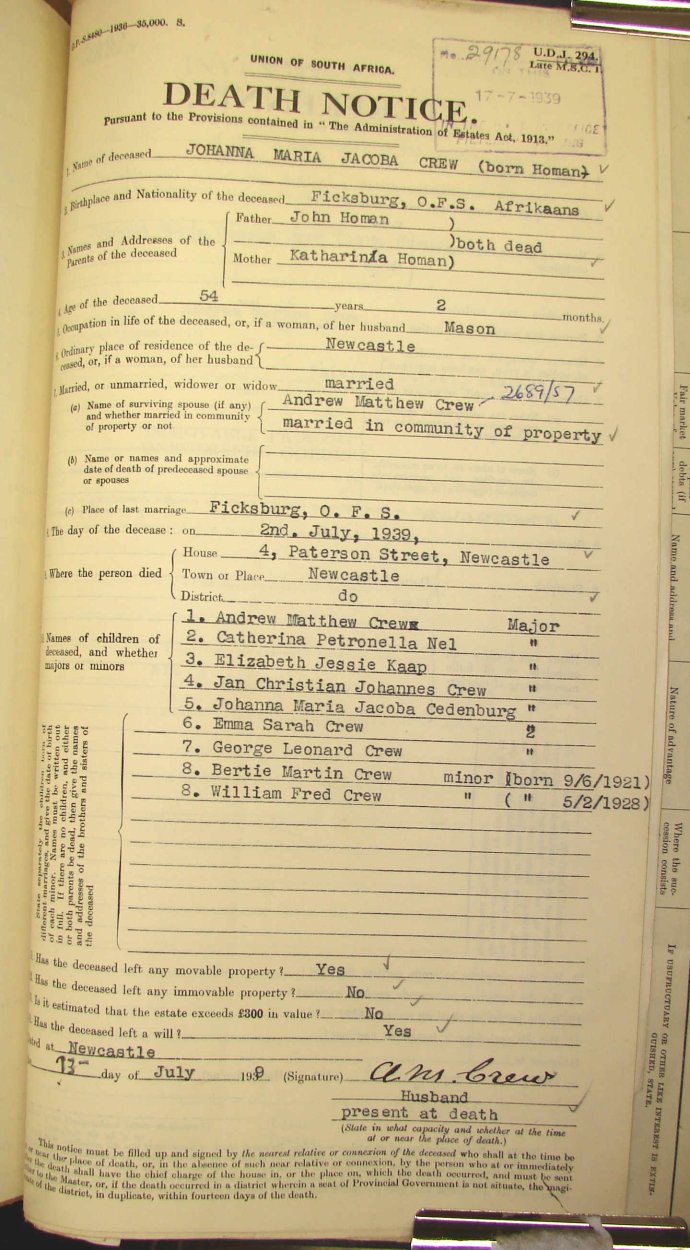 G.P.-S.8480—1936—35,000. S.
No. 29178
U.D.J. 294.
Late M.S.C. 1.
17-7-1939
UNION OF SOUTH AFRICA.
DEATH NOTICE.
Pursuant to the Provisions contained in "The Administration of Estates Act, 1913."
1. Name of deceased JOHANNA MARIA JACOBA CREW (born Homan)
2. Birthplace and Nationality of the deceased Ficksburg, O.F.S. Afrikaans
3. Names and Addresses of the Parents of the deceased
Father John Homan )
)both dead
Mother Katharina Homan)
4. Age of the deceased 54 years 2 months.
5. Occupation in life of the deceased, or, if a woman, of her husband Mason
6. Ordinary place of residence of the deceased, or, if a woman, of her husband Newcastle
7. Married, or unmarried, widower or widow married
2689/57
(a) Name of surviving spouse (if any) and whether married in community of property or not
Andrew Matthew Crew
married in community of property
(b) Name or names and approximate date of death of predeceased spouse or spouses
(c) Place of last marriage Ficksburg, O. F. S.
The day of the decease: on 2nd. July, 1939,
Where the person died
House 4, Paterson Street, Newcastle
Town or Place Newcastle
District do
Names of children of deceased, and whether majors or minors
1. Andrew Matthew Crew Major
2. Catherina Petronella Nel "
3. Elizabeth Jessie Kaap "
4. Jan Christian Johannes Crew "
5. Johanna Maria Jacoba Cedenburg "
6. Emma Sarah Crew "
7. George Leonard Crew "
8. Bertie Martin Crew minor (born 9/6/1921)
8. William Fred Crew " ( " 5/2/1928)
State separately the children born of
different marriages, and give the date of birth
of each minor. Names must be written out
in full. If there are no children, and either
or both parents be dead, then give the names
and addresses of the brothers and sisters of
the deceased
Has the deceased left any movable property? Yes
Has the deceased left any immovable property? No
Is it estimated that the estate exceeds £300 in value? No
Has the deceased left a will? Yes
Dated at Newcastle
13- day of July 1939 (Signature) A.M. Crew
Husband
present at death
(State in what capacity and whether at the time
at or near the place of death.)
This notice must be filled up and signed by the nearest relative or connexion of the deceased who shall at the time be
or near the place of death, or, in the absence of such near relative or connexion, by the person who at or immediately
the death shall have the chief charge of the house in, or the place on, which the death occurred, and must be sent
to the Master, or, if the death occurred in a district wherein a seat of Provincial Government is not situate, the magi-
of the district, in duplicate, within fourteen days of the death.
Fair market
debts (if
Name and address and
Nature of advantage
Where the suc-
cession consists
IF USUFRUCTUARY OR OTHER LIKE INTEREST IS EXTIN-
GUISHED, STATE.